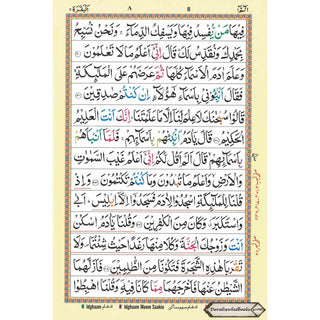 فِيهَا مَنْ يُّفْسِدُ فِيهَا وَيَسْفِكُ الدِّمَآءَ ۚ وَنَحْنُ نُسَبِّحُ
بِحَمْدِكَ وَنُقَدِّسُ لَكَ ؕ قَالَ اِنِّيْٓ اَعْلَمُ مَا لَا تَعْلَمُوْنَ
وَعَلَّمَ اٰدَمَ الْاَسْمَآءَ كُلَّهَا ثُمَّ عَرَضَهُمْ عَلَى الْمَلٰٓئِكَةِ
فَقَالَ اَنْۢبِـُٔوْنِيْ بِاَسْمَآءِ هٰٓؤُلَآءِ اِنْ كُنْتُمْ صٰدِقِيْنَ
قَالُوْا سُبْحٰنَكَ لَا عِلْمَ لَنَآ اِلَّا مَا عَلَّمْتَنَا ؕ اِنَّكَ اَنْتَ الْعَلِيْمُ
الْحَكِيْمُ قَالَ يٰٓاٰدَمُ اَنْۢبِئْهُمْ بِاَسْمَآئِهِمْ ۚ فَلَمَّآ اَنْۢبَاَهُمْ
بِاَسْمَآئِهِمْ ۙ قَالَ اَلَمْ اَقُلْ لَّكُمْ اِنِّيْٓ اَعْلَمُ غَيْبَ السَّمٰوٰتِ
وَالْاَرْضِ ۙ وَاَعْلَمُ مَا تُبْدُوْنَ وَمَا كُنْتُمْ تَكْتُمُوْنَ وَاِذْ
قُلْنَا لِلْمَلٰٓئِكَةِ اسْجُدُوْا لِاٰدَمَ فَسَجَدُوْٓا اِلَّآ اِبْلِيْسَ ؕ اَبٰى
وَاسْتَكْبَرَ ۫ وَكَانَ مِنَ الْكٰفِرِيْنَ وَقُلْنَا يٰٓاٰدَمُ اسْكُنْ
اَنْتَ وَزَوْجُكَ الْجَنَّةَ وَكُلَا مِنْهَا رَغَدًا حَيْثُ شِئْتُمَا ۪ وَلَا
تَقْرَبَا هٰذِهِ الشَّجَرَةَ فَتَكُوْنَا مِنَ الظّٰلِمِيْنَ فَاَزَلَّهُمَا
الشَّيْطٰنُ عَنْهَا فَاَخْرَجَهُمَا مِمَّا كَانَا فِيْهِ ۪ وَقُلْنَا اهْبِطُوْا
Idghaam
Idghaam Meem Saakin